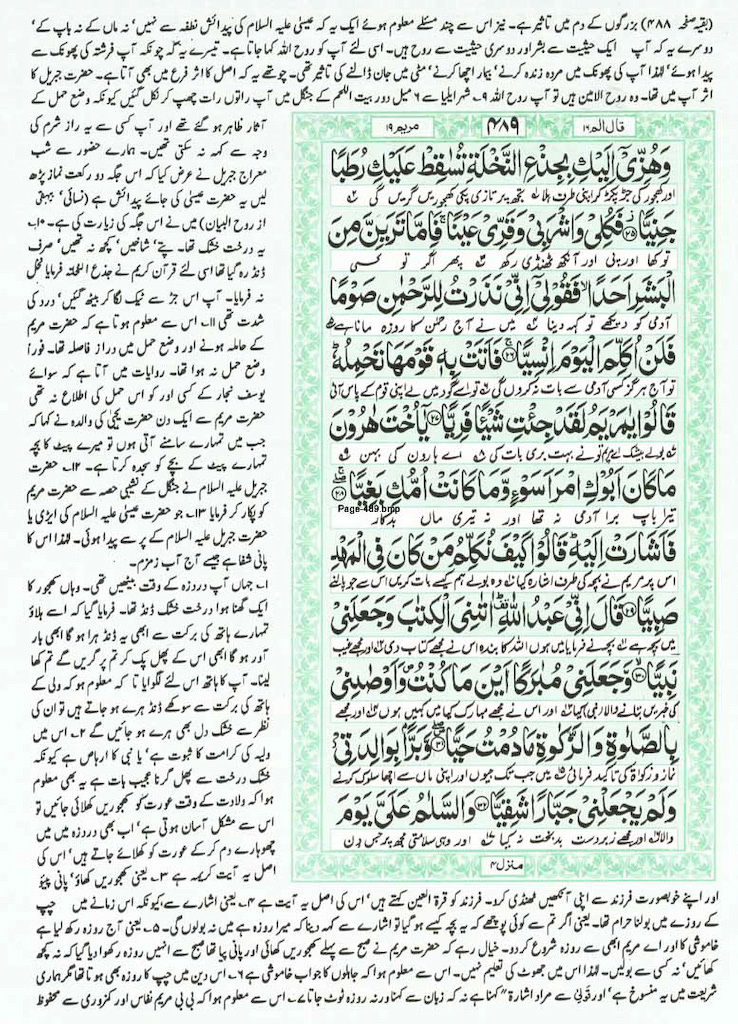 (بقیہ صفحہ ۴۸۸) بزرگوں کے دم میں تاثیر ہے۔ نیز اس سے چند مسئلے معلوم ہوئے ایک یہ کہ عیسیٰ علیہ السلام کی پیدائش نطفہ سے نہیں' نہ ماں کے نہ باپ کے'
دوسرے یہ کہ آپ ایک حیثیت سے بشر اور دوسری حیثیت سے روح ہیں۔ اسی لئے آپ کو روح اللہ کہا جاتا ہے۔ تیسرے یہ کہ چونکہ آپ فرشتہ کی پھونک سے
پیدا ہوئے' لہٰذا آپ کی پھونک میں مردہ زندہ کرنے' بیمار اچھا کرنے' مٹی میں جان ڈالنے کی تاثیر تھی۔ چوتھے یہ کہ اصل کا اثر فرع میں بھی آتا ہے۔ حضرت جبریل کا
اثر آپ میں تھا۔ وہ روح الامین ہیں تو آپ روح اللہ ۹۔ شہر ایلیا سے ۶ میل دور بیت اللحم کے جنگل میں آپ راتوں رات چھپ کر نکل گئیں کیونکہ وضع حمل کے
آثار ظاہر ہو گئے تھے اور آپ کسی سے یہ راز شرم کی
وجہ سے کہہ نہ سکتی تھیں۔ ہمارے حضور سے شب
معراج جبریل نے عرض کیا کہ اس جگہ دو رکعت نماز پڑھ
لیں یہ حضرت عیسیٰ کی جائے پیدائش ہے (نسائی' بیہقی
از روح البیان) میں نے اس جگہ کی زیارت کی ہے۔ ۱۰۔
یہ درخت خشک تھا۔ پتے' شاخیں' کچھ نہ تھیں' صرف
ڈنڈ رہ گیا تھا اسی لئے قرآن کریم نے جذع النخلۃ فرمایا نخل
نہ فرمایا۔ آپ اس جڑ سے ٹیک لگا کر بیٹھ گئیں' درد کی
شدت تھی ۱۱۔ اس سے معلوم ہوتا ہے کہ حضرت مریم
کے حاملہ ہونے اور وضع حمل میں دراز فاصلہ تھا۔ فوراً
وضع حمل نہ ہوا تھا۔ روایات میں آتا ہے کہ سوائے
یوسف نجار کے کسی اور کو اس حمل کی اطلاع نہ تھی
حضرت مریم سے ایک دن حضرت یحییٰ کی والدہ نے کہا کہ
جب میں تمہارے سامنے آتی ہوں تو میرے پیٹ کا بچہ
تمہارے پیٹ کے بچے کو سجدہ کرتا ہے۔ ۱۲۔ حضرت
جبریل علیہ السلام نے جنگل کے نشیبی حصہ سے حضرت مریم
کو پکار کر فرمایا ۱۳۔ جو حضرت عیسیٰ علیہ السلام کی ایڑی یا
حضرت جبریل علیہ السلام کے پر سے پیدا ہوئی۔ لہٰذا اس کا
پانی شفا ہے جیسے آج آب زمزم۔
۱۔ جہاں آپ درد زہ کے وقت بیٹھیں تھی۔ وہاں کھجور کا
ایک گھنا ہوا درخت خشک ڈنڈ تھا۔ فرمایا گیا کہ اسے ہلاؤ
تمہارے ہاتھ کی برکت سے ابھی یہ ڈنڈ ہرا ہو گا ابھی بار
آور ہو گا ابھی اس کے پھل پک کر تم پر گریں گے تم کھا
لینا۔ آپ کا ہاتھ اس لئے لگوایا تا کہ معلوم ہو کہ ولی کے
ہاتھ کی برکت سے سوکھے ڈنڈ ہرے ہو جاتے ہیں تو ان کی
نظر سے خشک دل بھی ہرے ہو جائیں گے ۲۔ اس میں
ولیہ کی کرامت کا ثبوت ہے' یا نبی کا ارہاص ہے کیونکہ
خشک درخت سے پھل گرنا عجیب بات ہے یہ بھی معلوم
ہوا کہ ولادت کے وقت عورت کو کھجوریں کھلائی جائیں تو
اس سے مشکل آسان ہوتی ہے' اب بھی درد زہ میں میں
چھوہارے دم کر کے عورت کو کھلائے جاتے ہیں' اس کی
اصل یہ آیت کریمہ ہے ۳۔ یعنی کھجوریں کھاؤ' پانی پیئو
قال الم ۱۶
۴۸۹
مریم ۱۹
وَهُزِّیْۤ اِلَیْكِ بِجِذْعِ النَّخْلَةِ تُسٰقِطْ عَلَیْكِ رُطَبًا
اور کھجور کی جڑ پکڑ کر اپنی طرف ہلا تجھ پر تازی پکی کھجوریں گریں گی
جَنِیًّا۲۵ فَكُلِیْ وَ اشْرَبِیْ وَ قَرِّیْ عَیْنًا فَاِمَّا تَرَیِنَّ مِنَ
تو کھا اور پی اور آنکھ ٹھنڈی رکھ پھر اگر تو کسی
الْبَشَرِ اَحَدًا فَقُوْلِیْۤ اِنِّیْ نَذَرْتُ لِلرَّحْمٰنِ صَوْمًا
آدمی کو دیکھے تو کہہ دینا میں نے آج رحمٰن کا روزہ مانا ہے
فَلَنْ اُكَلِّمَ الْیَوْمَ اِنْسِیًّا۲۶ فَاَتَتْ بِهٖ قَوْمَهَا تَحْمِلُهٗ
تو آج ہرگز کسی آدمی سے بات نہ کروں گی تو اسے گود میں لے اپنی قوم کے پاس آئی
قَالُوْا یٰمَرْیَمُ لَقَدْ جِئْتِ شَیْـًٔا فَرِیًّا۲۷ یٰۤاُخْتَ هٰرُوْنَ
بولے بیشک اے مریم تو نے بہت بری بات کی اے ہارون کی بہن
مَا كَانَ اَبُوْكِ امْرَاَ سَوْءٍ وَّ مَا كَانَتْ اُمُّكِ بَغِیًّا۲۸
Page-489.bmp
تیرا باپ برا آدمی نہ تھا اور نہ تیری ماں بدکار
فَاَشَارَتْ اِلَیْهِ قَالُوْا كَیْفَ نُكَلِّمُ مَنْ كَانَ فِی الْمَهْدِ
اس پر مریم نے بچہ کی طرف اشارہ کیا وہ بولے ہم کیسے بات کریں اس سے جو پالنے
صَبِیًّا۲۹ قَالَ اِنِّیْ عَبْدُ اللّٰهِ اٰتٰىنِیَ الْكِتٰبَ وَ جَعَلَنِیْ
میں بچہ ہے بچہ نے فرمایا میں ہوں اللہ کا بندہ اس نے مجھے کتاب دی اور مجھے غیب
نَبِیًّا۳۰ وَّ جَعَلَنِیْ مُبٰرَكًا اَیْنَ مَا كُنْتُ وَ اَوْصٰنِیْ
کی خبریں بتانے والا (نبی) کیا اور اس نے مجھے مبارک کیا میں کہیں ہوں اور مجھے
بِالصَّلٰوةِ وَ الزَّكٰوةِ مَا دُمْتُ حَیًّا۳۱ وَّ بَرًّۢا بِوَالِدَتِیْ
نماز و زکوٰۃ کی تاکید فرمائی جب تک جیوں اور اپنی ماں سے اچھا سلوک کرنے
وَ لَمْ یَجْعَلْنِیْ جَبَّارًا شَقِیًّا۳۲ وَ السَّلٰمُ عَلَیَّ یَوْمَ
والا اور مجھے زبردست بدبخت نہ کیا اور وہی سلامتی مجھ پر جس دن
منزل ۴
اور اپنے خوبصورت فرزند سے اپنی آنکھیں ٹھنڈی کرو۔ فرزند کو قرۃ العین کہتے ہیں' اس کی اصل یہ آیت ہے ۴۔ یعنی اشارے سے کیونکہ اس زمانے میں چپ
کے روزے میں بولنا حرام تھا۔ یعنی اگر تم سے کوئی پوچھے کہ یہ بچہ کیسے ہو گیا تو اشارے سے کہہ دینا کہ میرا روزہ ہے میں نہ بولوں گی۔ ۵۔ یعنی آج روزہ رکھ لیا ہے
خاموشی کا اور اے مریم ابھی سے روزہ شروع کر دو۔ خیال رہے کہ حضرت مریم نے صبح سے پہلے کھجوریں کھائی اور پانی پیا تھا صبح سے انہیں روزہ رکھوا دیا گیا کہ نہ کچھ
کھائیں' نہ کسی سے بولیں۔ لہٰذا اس میں جھوٹ کی تعلیم نہیں۔ اس سے معلوم ہوا کہ جاہلوں کا جواب خاموشی ہے ۶۔ اس دین میں چپ کا روزہ بھی ہوتا تھا مگر ہماری
شریعت میں یہ منسوخ ہے' اور قولی سے مراد اشارۃً کہنا ہے نہ کہ زبان سے کہنا ورنہ روزہ ٹوٹ جاتا ۷۔ اس سے معلوم ہوا کہ بی بی مریم نفاس اور کمزوری سے محفوظ